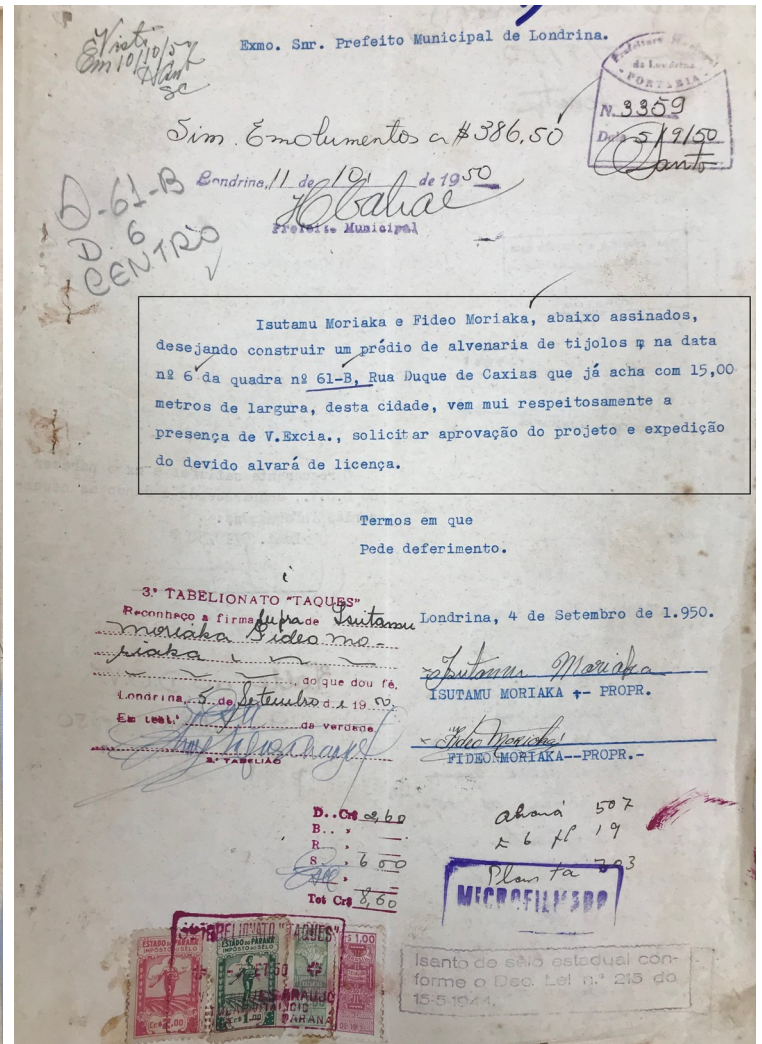 Visto
Em 10/10/50
Exmo. Snr. Prefeito Municipal de Londrina.
Prefeitura Municipal
de Londrina
- PORTARIA -
N. 3359
Data 5/9/50
Santo
Sim. Emolumentos Cr$ 386,50
Londrina, 11 de 10 de 1950
Prefeito Municipal
Q-61-B
D. 6
CENTRO
Isutamu Moriaka e Fideo Moriaka, abaixo assinados,
desejando construir um prédio de alvenaria de tijolos na data
nº 6 da quadra nº 61-B, Rua Duque de Caxias que já acha com 15,00
metros de largura, desta cidade, vem mui respeitosamente a
presença de V.Excia., solicitar aprovação do projeto e expedição
do devido alvará de licença.
Termos em que
Pede deferimento.
3.º TABELIONATO "TAQUES"
Reconheço a firma supra de Isutamu
Moriaka Fideo Mo-
riaka
, do que dou fé.
Londrina, 5 de Setembro de 1950.
Em test.º da verdade
3.º TABELIÃO
Londrina, 4 de Setembro de 1.950.
Isutamu Moriaka
ISUTAMU MORIAKA +- PROPR.
Fideo Moriaka
FIDEO MORIAKA--PROPR.-
D.. Cr$ 2,60
B.. »
R.. »
S.. » 6 00
»
Tot Cr$ 8,60
Alvará 507
L 6 fl 19
Planta 703
MICROFILMADO
Isanto de sêlo estadual con-
forme o Dec. Lei n.º 215 do
15-5-1944.
TABELIONATO "TAQUES"
ESTADO DO PARANÁ
IMPOSTO DO SÊLO
Cr$ 2,00
ESTADO DO PARANÁ
IMPOSTO DO SÊLO
Cr$ 1,00
Cr$ 1,00
ARAUJO
PARANÁ